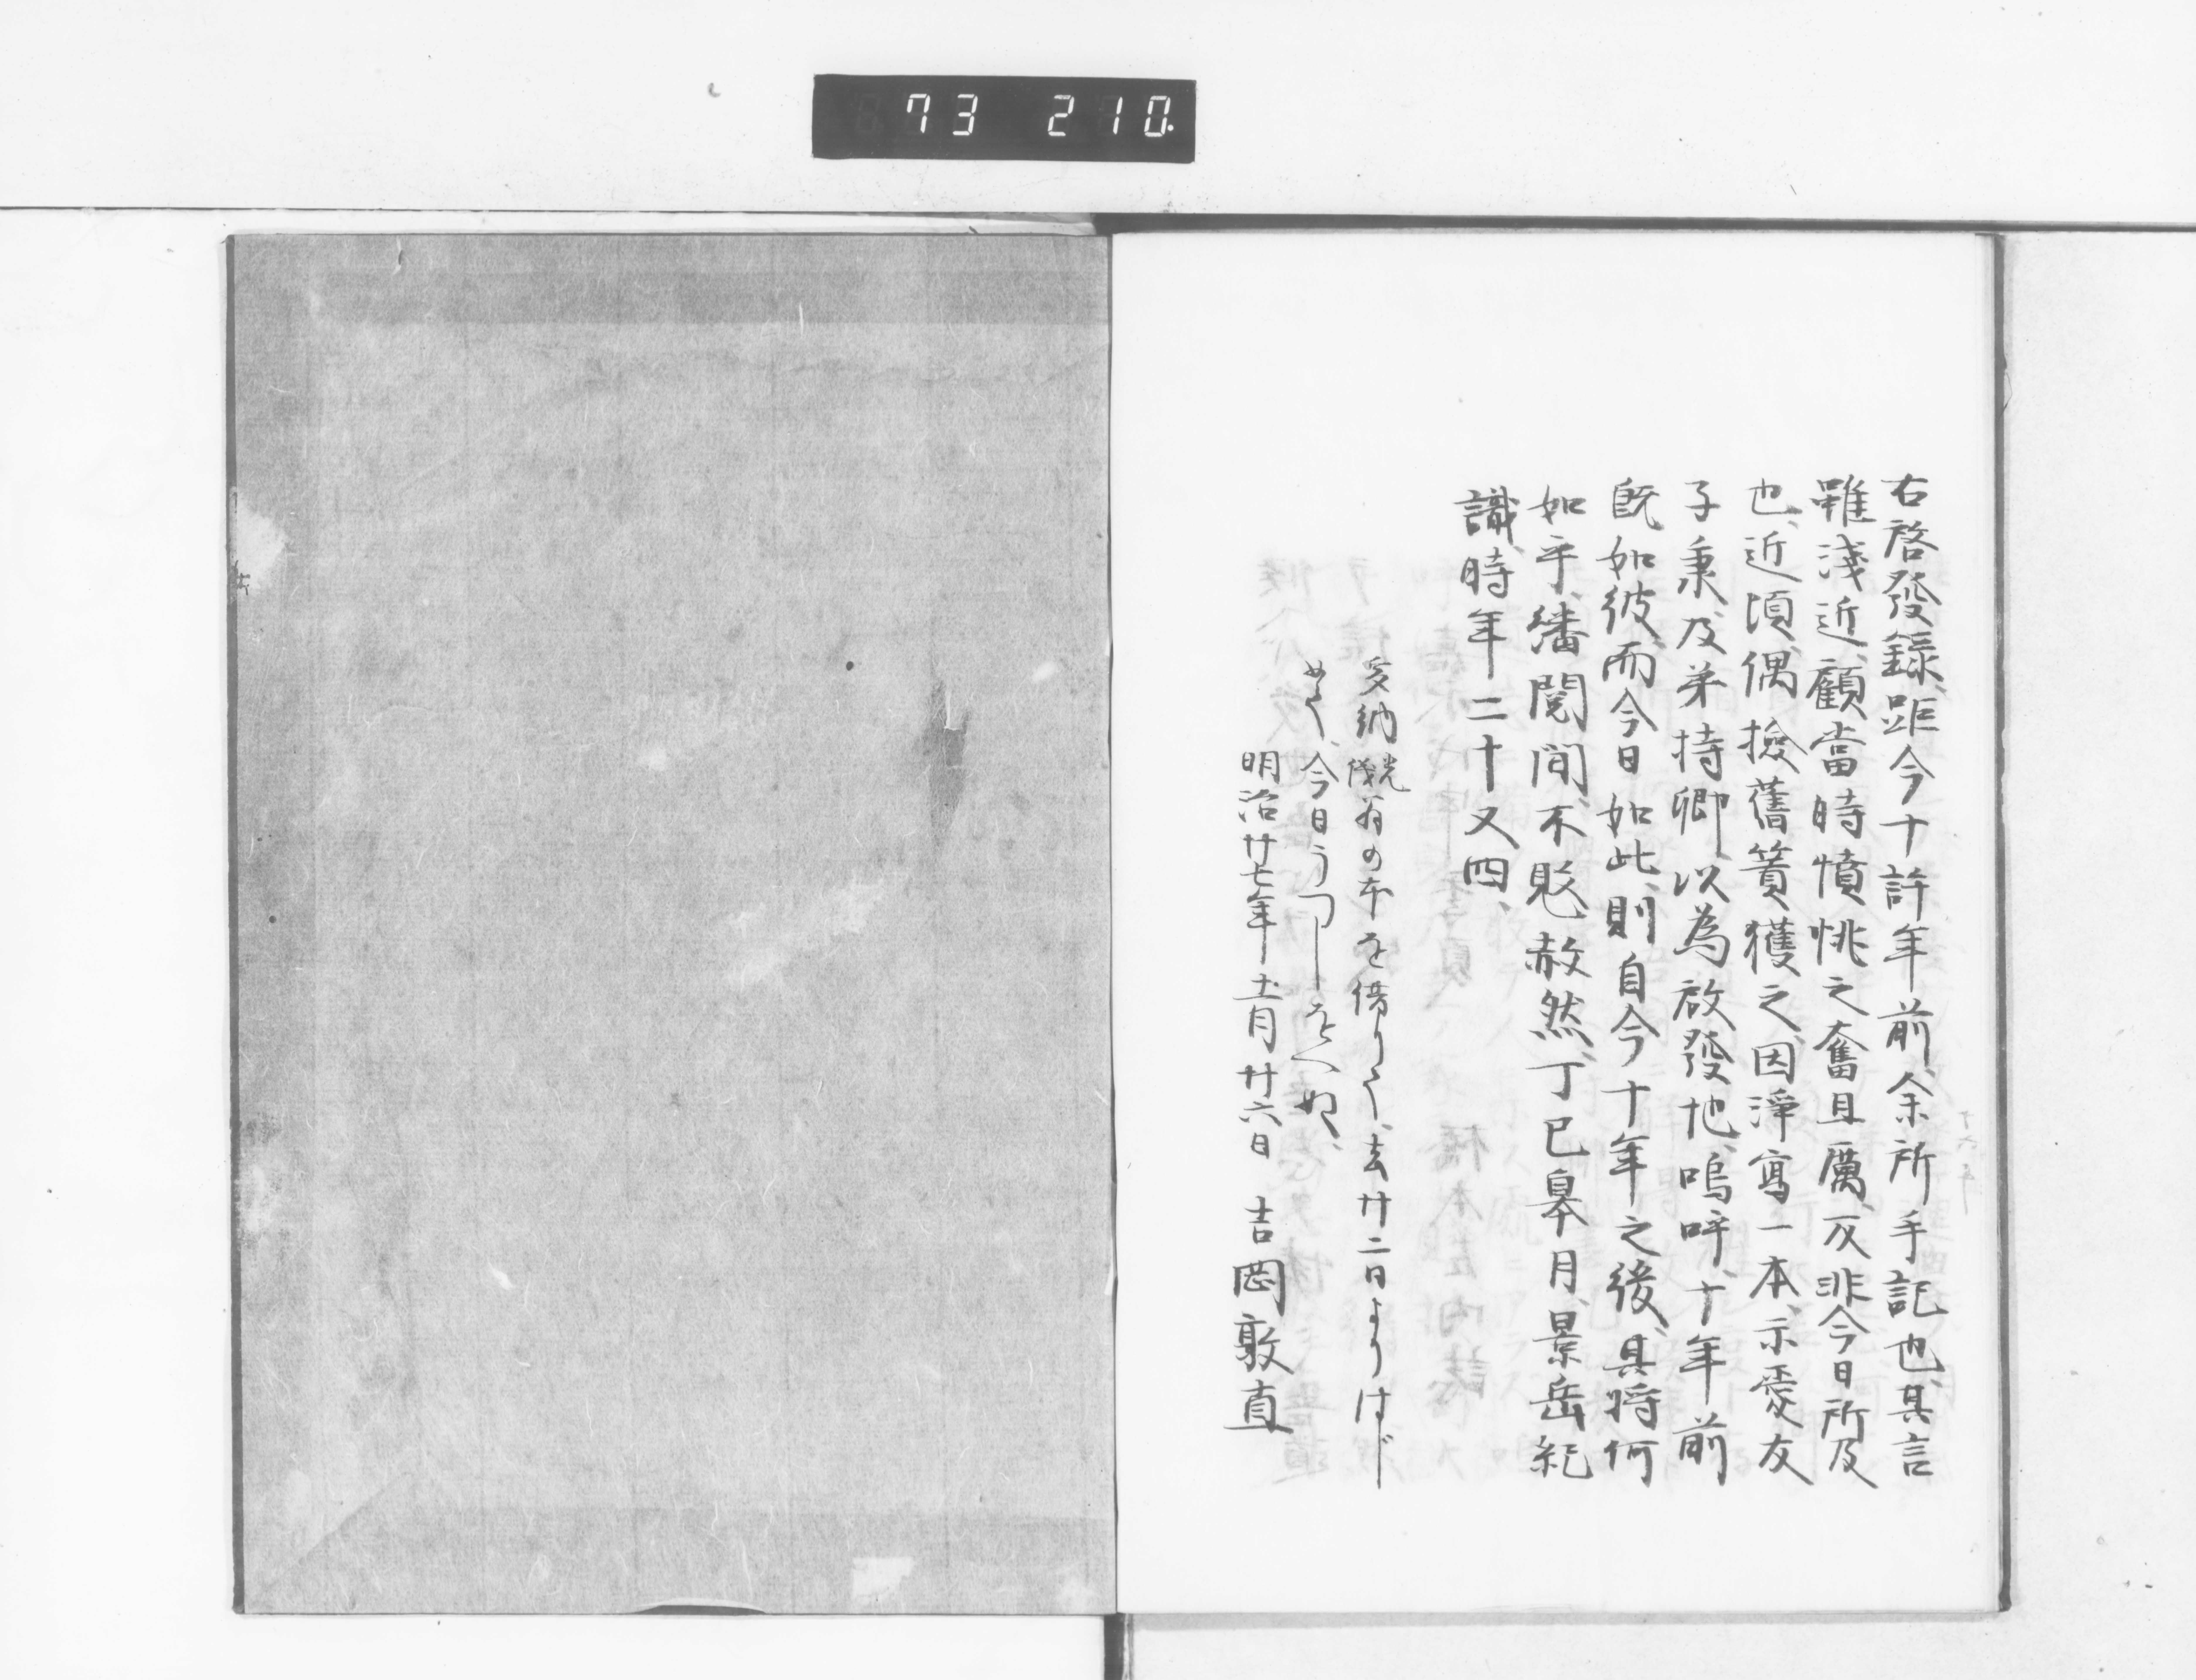 73 210.
右啓發録、距今十許年前、余所手記也、其言
雖淺近、顧當時憤悱之奮且厲、反非今日所及
也、近頃偶撿舊簀獲之、因淨寫一本、示愛友
子秉、及弟持卿、以為啟發地、嗚呼、十年前
既如彼、而今日如此、則自今十年之後、其将何
如乎、繙閲間、不覺赦然、丁巳皋月、景岳紀
識、時年二十又四、
翁の本を借りて、去廿二日よりはじ
めて、今日うつしをへぬ、
明治廿七年十一月廿六日 吉岡敦直